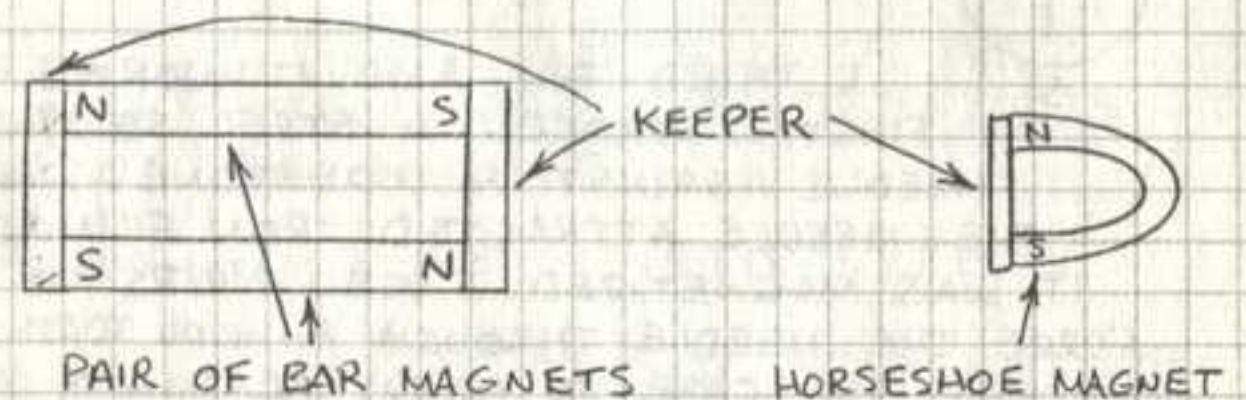 N S
KEEPER
N
S N
S
PAIR OF BAR MAGNETS
HORSESHOE MAGNET